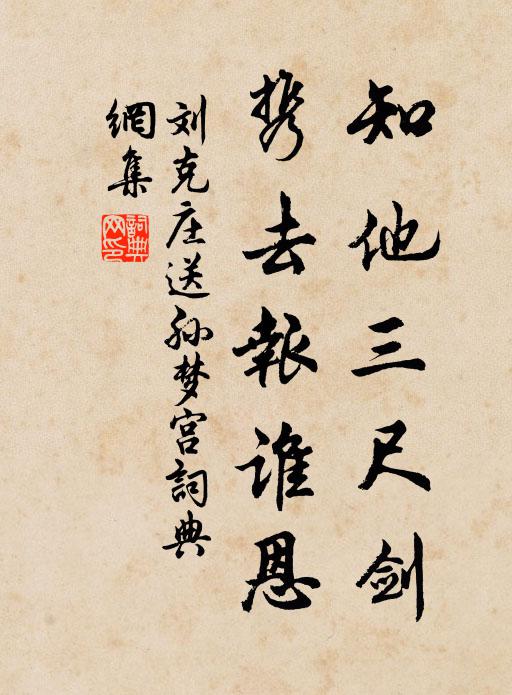 知他三尺剑
携去報谁恩
刘克庄送孙梦宫詞典
網集
詞典網印